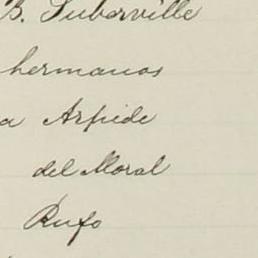 B. Suberville
hermanos
a Arpide
del Moral
Rufo